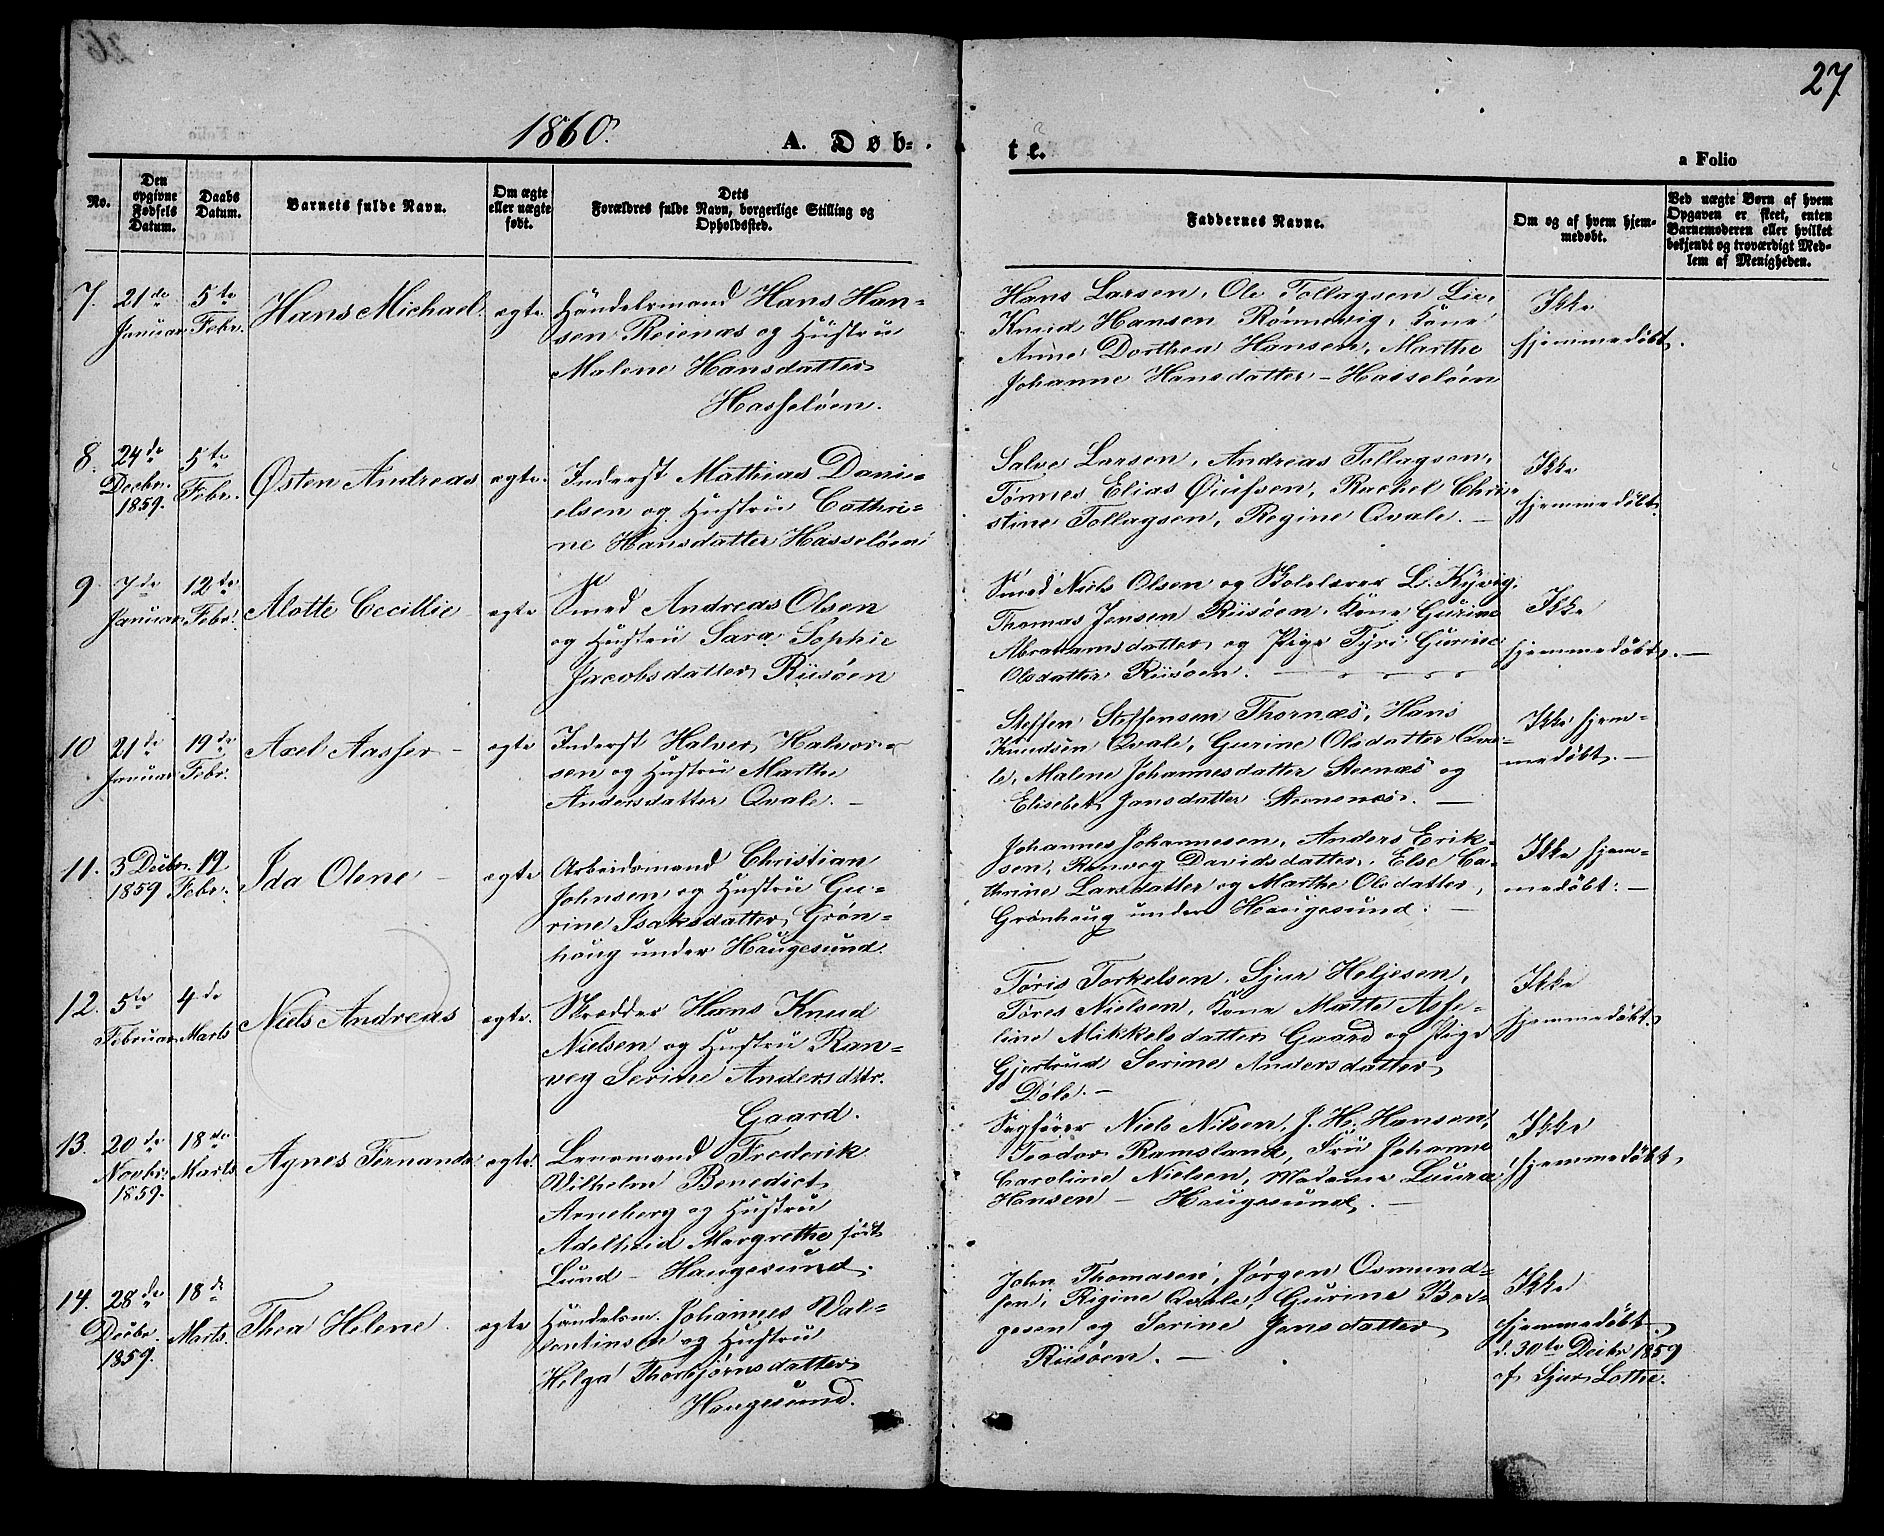 27
1860.
A. Døb-
te.
a Folio
No.
Den opgivne Fødsels Datum.
Daabs Datum.
Barnets fulde Navn.
Om ægte eller uægte født.
Dets Forældres fulde Navn, borgerlige Stilling og Opholdssted.
Faddernes Navne.
Om og af hvem hjemmedøbt.
Ved uægte Børn af hvem Opgaven er skeet, enten Barnemoderen eller hvilket bekjendt og troværdigt Medlem af Menigheden.
7.
21de Januar
5te Febr.
Hans Michael.
ægte.
Handelsmand Hans Han-
sen Reienæs og Hustru
Malene Hansdatter
Hasseløen.
Hans Larsen, Ole Tollagsen Lie,
Knud Hansen Rønnevig, Kone
Anne Dorthea Hansen, Marthe
Johanne Hansdatter - Hasseløen
Ikke
hjemmedøbt.
8.
24de Decbr. 1859.
5te Febr.
Østen Andreas
ægte.
Inderst Mathias Dani-
elsen og Hustru Cathri-
ne Hansdatter Hasseløen
Salve Larsen, Andreas Tollagsen,
Tønnes Elias Øiufsen, Rachel Chri-
stine Tollagsen, Regine Qvale. -
Ikke
hjemmedøbt.
9.
7de Januar
12te Febr.
Alotte Cecillie
ægte
Smed Andreas Olsen
og Hustru Sara Sophie
Jacobsdatter Riisøen
Smed Niels Olsen og Skolelærer L. Kyvig,
Thomas Jensen Riisøen, Kone Gurine
Abrahamsdatter og Pige Tyri Gurine
Olsdatter Riisøen.
Ikke
hjemmedøbt. -
10
21de Januar
19de Febr.
Axel Aasser -
ægte
Inderst Halver Halvor-
sen og Hustru Marthe
Andersdatter Qvale. -
Steffen Steffensen Thornæs, Hans
Knudsen Qvale, Gurine Olsdatter Qva-
le, Malene Johannesdatter Steenæs og
Elisebet Jansdatter Steensnæs. -
Ikke hjem-
medøbt. -
11.
3 Decbr. 1859
19 Febr.
Ida Olene -
ægte
Arbeidsmand Christian
Johnsen og Hustru Gu-
rine Isaksdatter Grøn-
houg under Haugesund.
Johannes Johannesen, Anders Erik-
sen, Ranveg Davidsdatter, Else Ca-
thrine Larsdatter og Marthe Olsdatter,
Grønhoug under Haugesund. -
Ikke hjem-
medøbt. -
12.
5te Februar
4de Marts
Niels Andreas
ægte.
Skrædder Hans Knud
Nielsen og Hustru Ran-
veg Serine Andersdtr.
Gaard.
Tøris Torkelsen, Sjur Heljesen,
Tøres Nielsen, Kone Matte Asse-
line Mikkelsdatter Gaard og Pige
Gjertrud Serine Andersdatter
Døle. -
Ikke
hjemmedøbt.
13.
20de Novbr. 1859.
18de Marts
Agnes Fernanda
ægte.
Lensmand Frederik
Wilhelm Benedict
Arneberg og Hustru
Adelheid Margrethe født
Lund - Haugesund.
Sagfører Niels Nilsen, J. H. Hansen,
Teodor Ramsland, Fru Johanne
Caroline Nielsen, Madame Laura
Hansen - Haugesund. -
Ikke
hjemmedøbt.
14.
28de Decbr. 1859.
18de Marts.
Thea Helene.
ægte
Handelsm. Johannes Val-
entinsen og Hustru
Helga Thorbjørnsdatter
Haugesund.
John Thomasen, Jørgen Osmund-
sen, Rigine Qvale, Gurine Bør-
gesen og Serine Jensdatter
Riisøen. -
Ikke
hjemmedøbt.
d. 30te Decbr 1859
af Sjur Lothe.